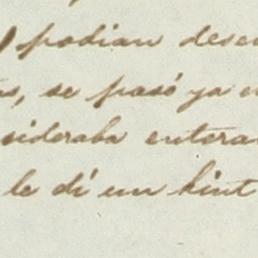 podian dese
s, se pasó ya e
sideraba entera
le dí un hint